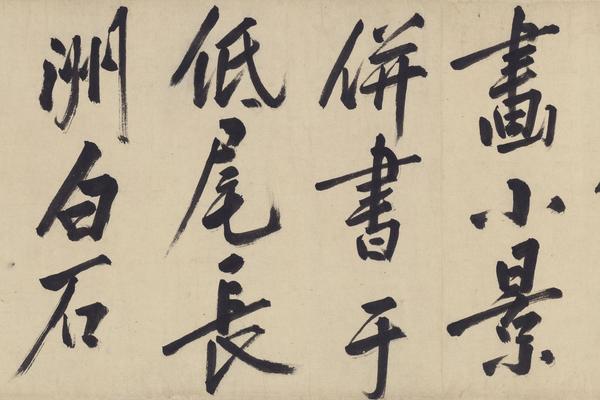 畫小景
併書于
低尾長
洲白石